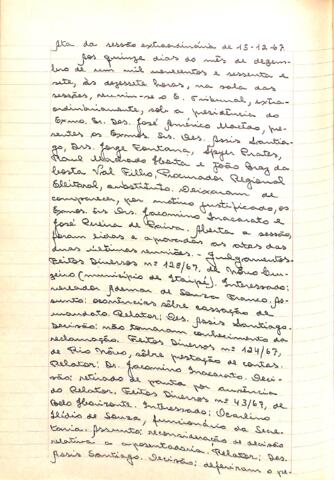 Ata da sessão extraordinária de 15-12-67
Aos quinze dias do mês de dezem-
bro de um mil novecentos e sessenta e
sete, às dezessete horas, na sala das
sessões, reuniu-se o E. Tribunal, extra-
ordinàriamente, sob a presidência do
Exmo. Sr. Des. José Américo Macêdo, pre-
sentes os Exmos. Srs. Des. Assis Santia-
go, Drs. Jorge Fontana, Prates,
Raul Machado Horta e João Braz da
Costa Val Filho, Procurador Regional
Eleitoral, substituto. Deixaram de
comparecer, por motivo justificado, os
Exmos. Srs. Drs. Jacomino Inacarato e
José Pereira de Paiva. Aberta a sessão,
foram lidas e aprovadas as atas das
duas últimas reuniões. - Julgamentos:
Feitos Diversos nº 128/67, de Nôvo Cru-
zeiro (município de Itaipé). Interessado:
vereador Ademar de Souza Franco. As-
sunto: ocorrências sôbre cassação de
mandato. Relator: Des. Assis Santiago.
Decisão: não tomaram conhecimento da
reclamação. Feitos Diversos nº 124/67,
de Rio Nôvo, sôbre prestação de contas.
Relator: Dr. Jacomino Inacarato. Deci-
são: retirado de pauta por ausência
do Relator. Feitos Diversos nº 43/67, de
Belo Horizonte. Interessado:
Ilídio de Souza, funcionário da Secre-
taria. Assunto: reconsideração de decisão
relativa a aposentadoria. Relator: Des.
Assis Santiago. Decisão: deferiram o pe-